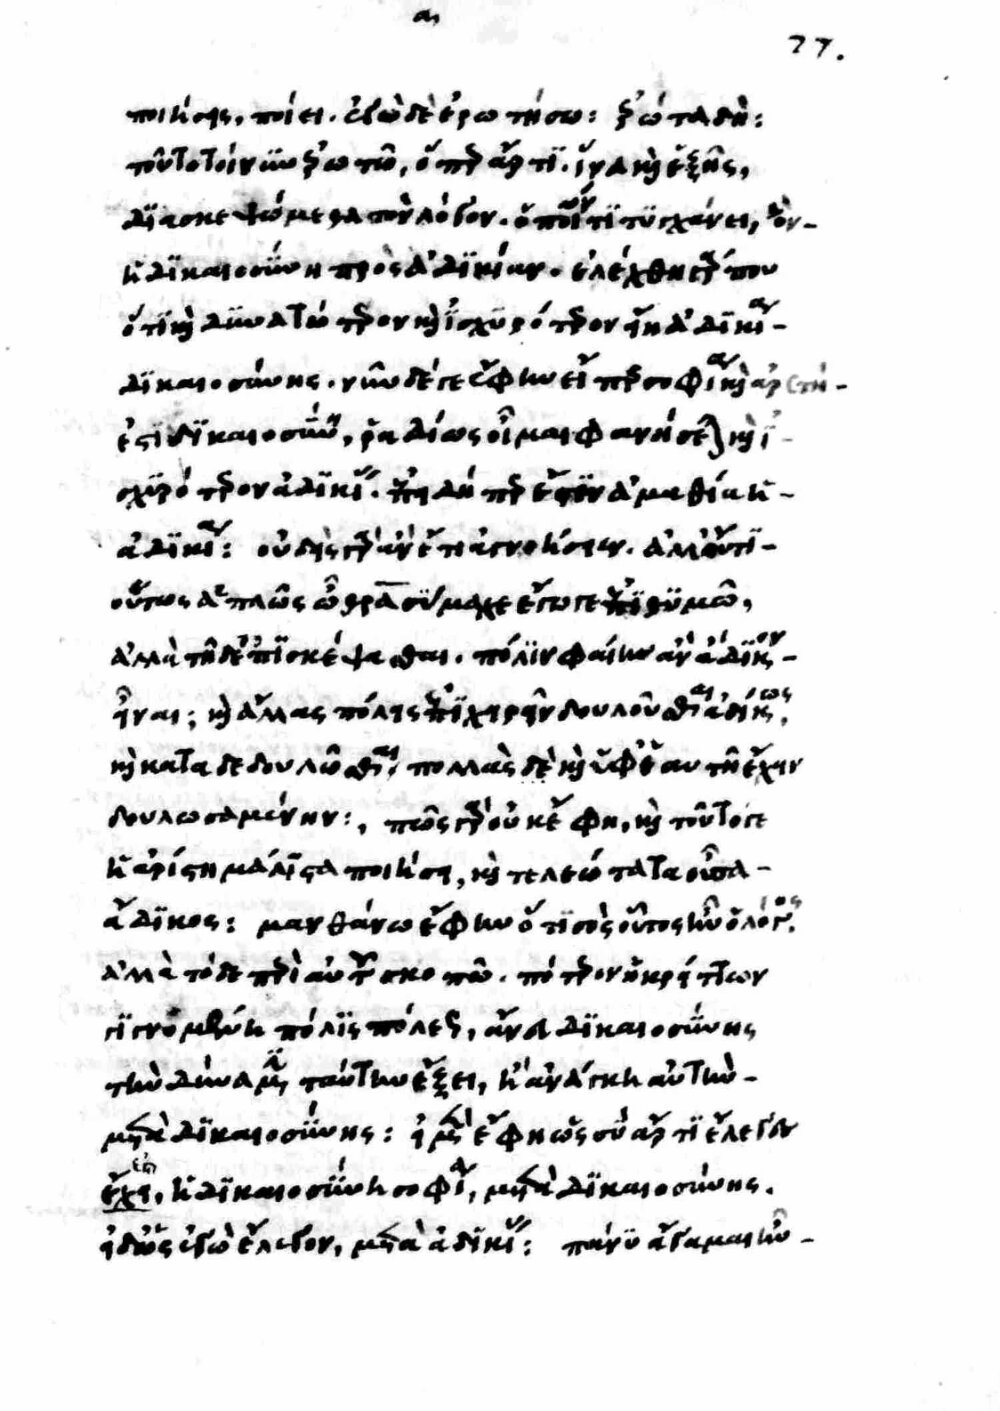 α
77.
ποιήσεις, ποίει. ἐγὼ δὲ ἐρωτήσω: ἐρώτα δή:
τοῦτο τοίνυν ἐρωτῶ, ὅπερ ἄρτι. ἵνα καὶ ἑξῆς,
διασκεψώμεθα τὸν λόγον. ὁποῖόν τι τυγχάνει, ὂν
ἡ δικαιοσύνη πρὸς ἀδικίαν. ἐλέχθη γάρ που
ὅτι καὶ δυνατώτερον καὶ ἰσχυρότερον εἴη ἀδικία
δικαιοσύνης. νῦν δέ γε ἔφην εἴπερ σοφία καὶ ἀρετή
ἐστι δικαιοσύνη, ῥαδίως οἶμαι φανήσεται καὶ ἰ-
σχυρότερον ἀδικίας. ἐπειδήπερ ἐστὶν ἀμαθία ἡ
ἀδικία: οὐδεὶς γὰρ ἂν ἔτι ἀγνοήσειεν. ἀλλ' οὔτι
οὕτως ἁπλῶς ὦ θρασύμαχε ἔγωγε ἐπιθυμῶ,
ἀλλὰ τῇδε ἐπισκέψασθαι. πόλιν φαίην ἂν ἄδικον
εἶναι; καὶ ἄλλας πόλεις ἐπιχειρεῖν δουλοῦσθαι ἀδίκως,
καὶ καταδεδουλῶσθαι, πολλὰς δὲ καὶ ὑφ' ἑαυτῇ ἔχειν
δουλωσαμένην:, πῶς γὰρ οὐκ ἔφη, καὶ τοῦτό γε
ἡ ἀρίστη μάλιστα ποιήσει, καὶ τελεώτατα οὖσα
ἄδικος: μανθάνω ἔφην ὅτι σὸς οὗτος ἦν ὁ λόγος.
ἀλλὰ τόδε περὶ αὐτοῦ σκοπῶ. πότερον ἡ κρείττων
γιγνομένη πόλις πόλεως, ἄνευ δικαιοσύνης
τὴν δύναμιν ταύτην ἕξει, ἢ ἀνάγκη αὐτὴν
μετὰ δικαιοσύνης: εἰ μὲν ἔφη ὡς σὺ ἄρτι ἔλεγες
ἔχει, ἡ δικαιοσύνη σοφία, μετὰ δικαιοσύνης.
εἰ δ' ὡς ἐγὼ ἔλεγον, μετὰ ἀδικίας: πάνυ ἄγαμαι ἦν